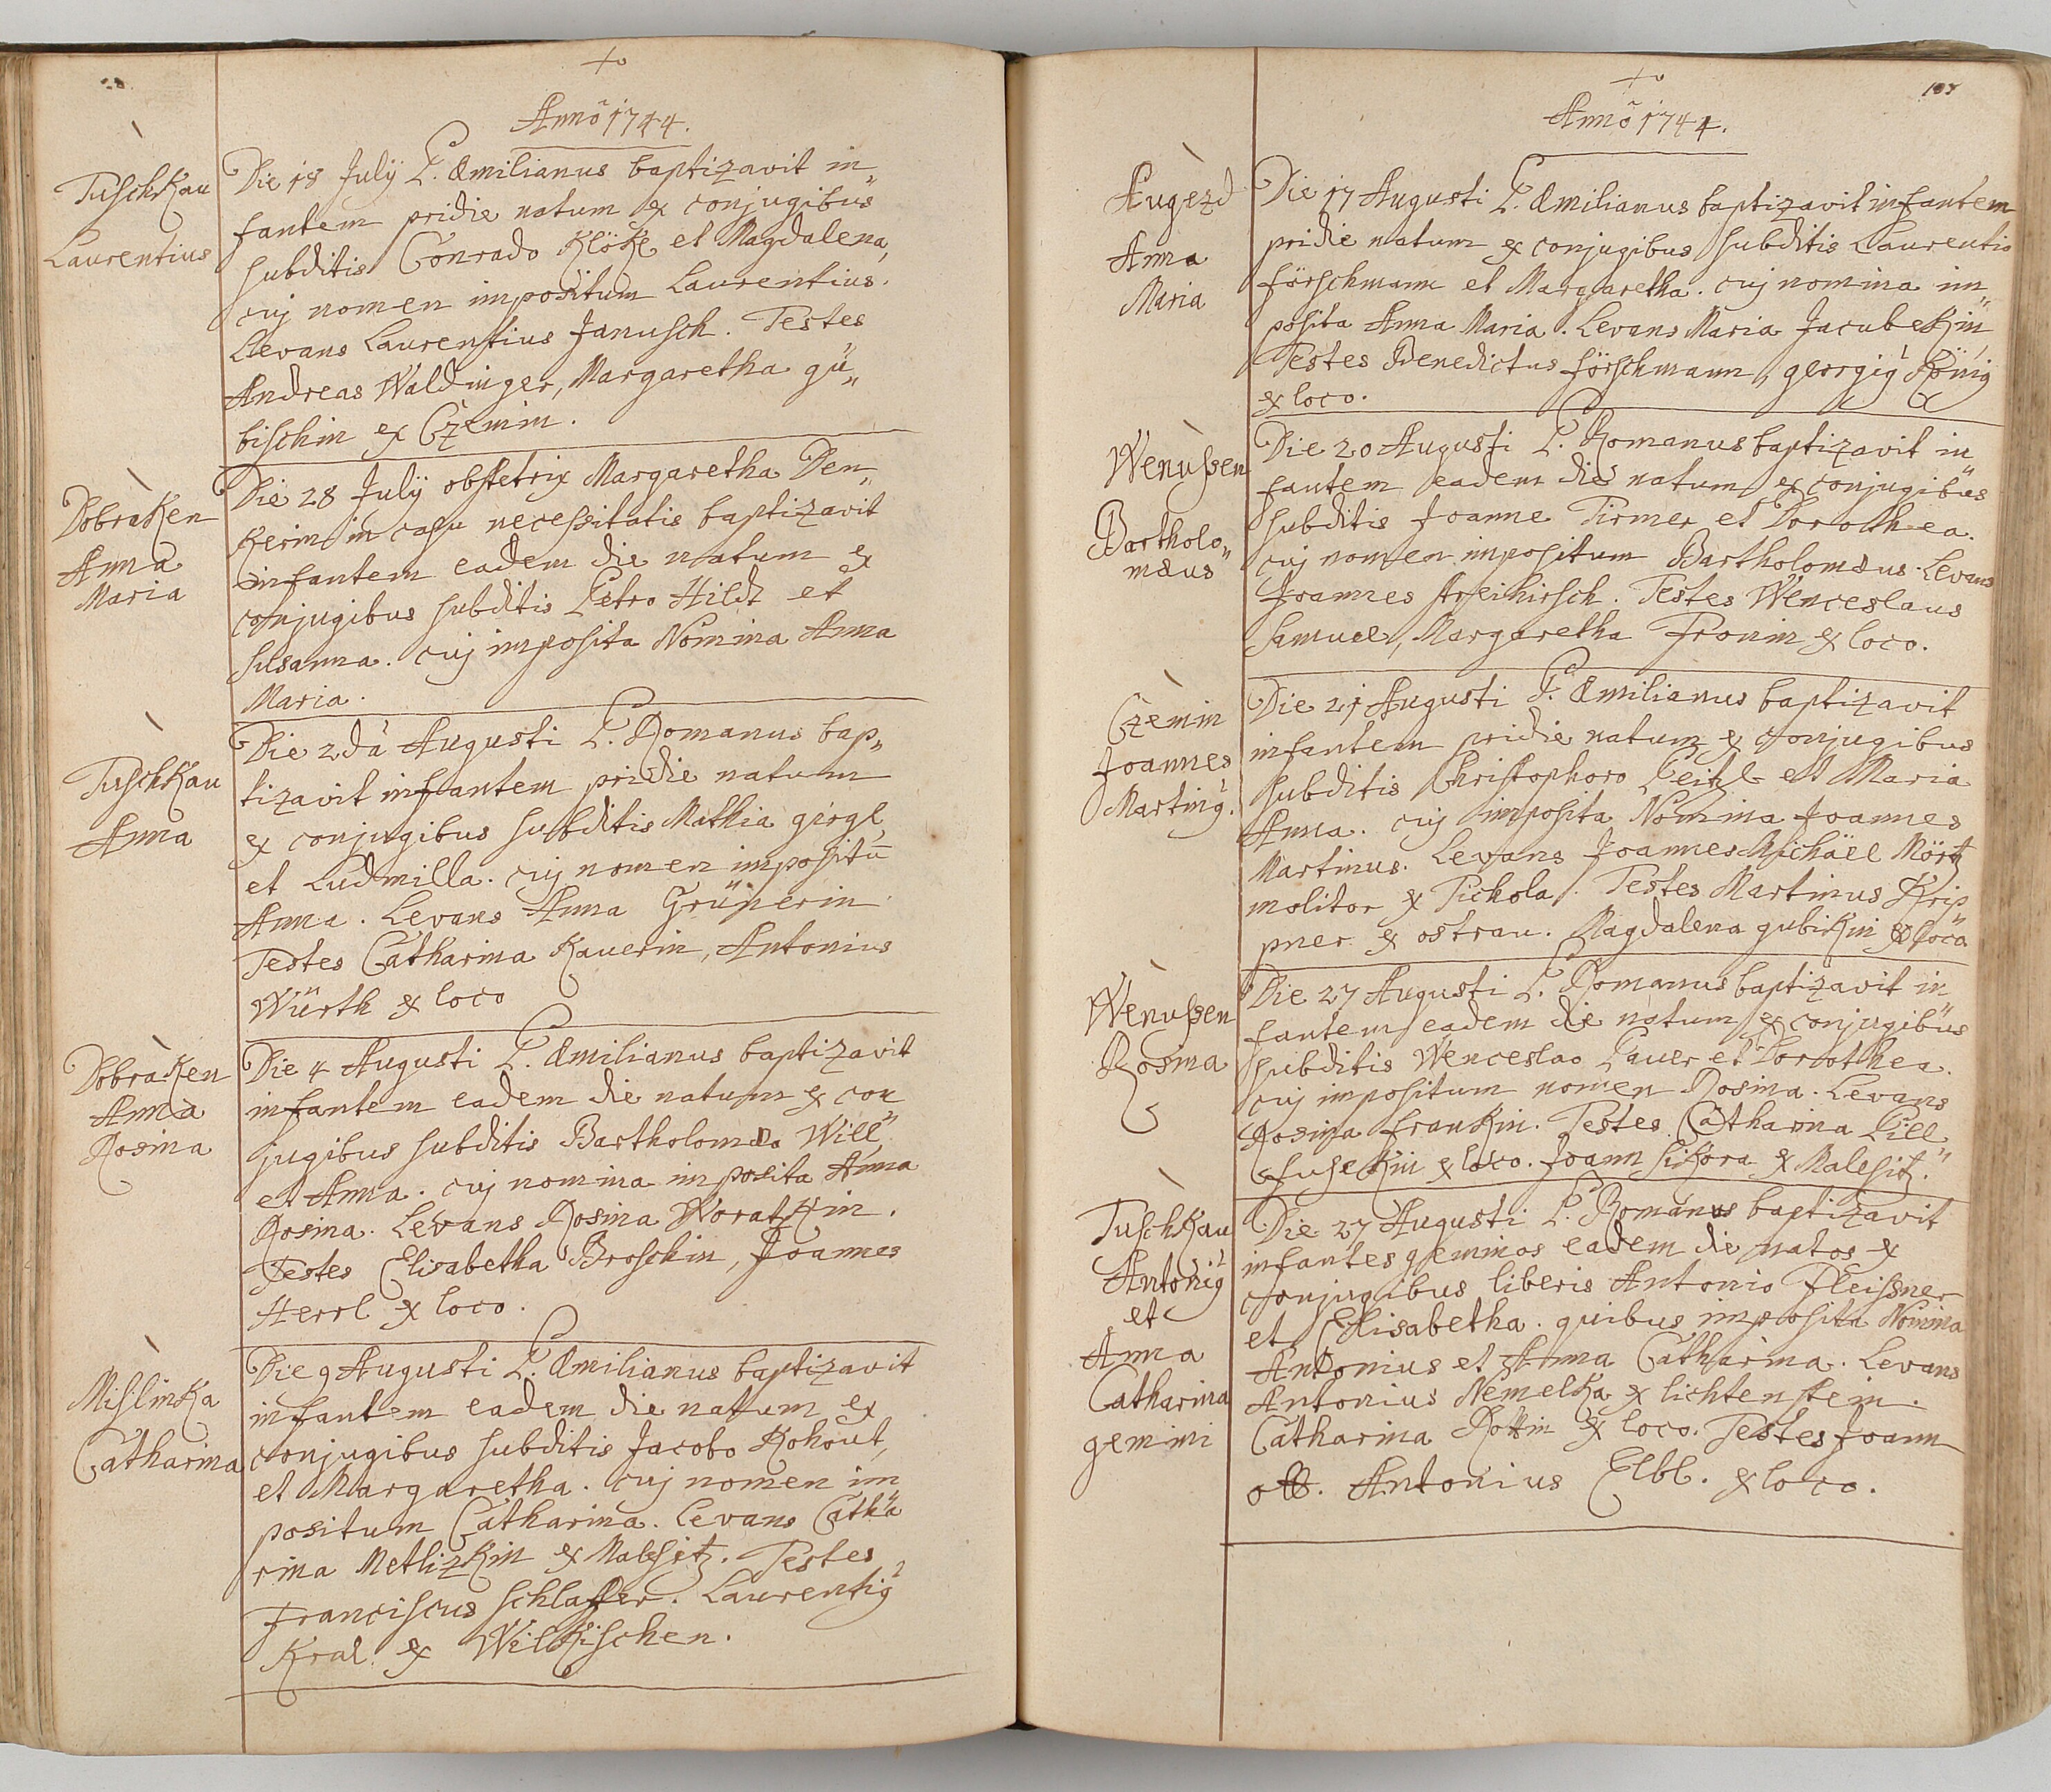 Annõ 1744.
Tuschkau
Laurentius
Die 18 Julÿ P. Æmilianus baptizavit in„
fantem pridie natum ex conjugibus
subditis Conrado Klökl et Magdalena,
cuj nomen impositum Laurentius.
Levans Laurentius Janusch. Testes
Andreas Waldinger, Margaretha gu„
bischin ex Czemin.
Dobraken
Anna
Maria
Die 28 Julÿ obstetrix Margaretha Den„
kerin in casu necessitatis baptizavit
infantem eadem die natum ex
conjugibus subditis Petro Hildt et
Susanna. cuj imposita Nomina Anna
Maria.
Tuschkau
Anna
Die 2dâ Augusti P. Romanus bap„
tizavit infantem pridie natum
ex conjugibus subditis Mathia girgl
et Ludmilla. cuj nomen impositū
Anna. Levans Anna Grünerin
Testes Catharina Kauerin, Antonius
Würth ex loco
Dobraken
Anna
Rosina
Die 4 Augusti P. Æmilianus baptizavit
infantem eadem die natum ex con„
jugibus subditis Bartholomæo Will
et Anna. cuj nomina imposita Anna
Rosina. Levans Rosina Woratkin.
Testes Elisabetha Broschin, Joannes
Herrl ex loco.
Mislinka
Catharina
Die 9 Augusti P. Æmilianus baptizavit
infantem eadem die natum ex
conjugibus subditis Jacobo Kohout,
et Margaretha. cuj nomen im„
positum Catharina. Levans Catha„
rina Metlizkin ex Malesitz. Testes
Franciscus Schlaffer. Laurentiꝰ
Kral ex Wilkischen.
Annõ 1744.
Augezd
Anna
Maria
Die 17 Augusti P. Æmilianus baptizavit infantem
pridie natum ex conjugibus subditis Laurentio
förschmann et Margaretha. cuj nomina im„
posita Anna Maria. Levans Maria Jacubekin,
Testes Benedictus förschmann, georgiꝰ König
ex loco.
Wenussen
Bartholo„
mæus
Die 20 Augusti P. Romanus baptizavit in„
fantem eadem die natum ex conjugibus
subditis Joanne Pirmer et Dorothea.
cuj nomen impositum Bartholomæus. Levans
Joannes Streihirsch. Testes Wenceslaus
Samuel, Margaretha Fronin ex loco.
Czemin
Joannes
Martinꝰ.
Die 21 Augusti P. Æmilianus baptizavit
infantem pridie natum ex conjugibus
subditis Christophoro Peitzl et Maria
Anna. cuj imposita Nomina Joannes
Martinus. Levans Joannes Michaël Mörtz
molitor ex Tichola. Testes Martinus Krip„
pner ex ostrau. Magdalena gubikin ex loco
Wenussen
Rosina
Die 27 Augusti P. Romanus baptizavit in„
fantem eadem die natum ex conjugibus
subditis Wenceslao Pauer et Dorothea.
cuj impositum nomen Rosina. Levans
Rosina Frankin. Testes Catharina Pill„
husekin ex loco. Joann Sikora ex Malesitz.
Tuschkau
Antoniꝰ
et
Anna
Catharina
gemini
Die 27 Augusti P. Romanus baptizavit
infantes geminos eadem die natos ex
conjugibus liberis Antonio Pleissner
et Elisabetha. quibus imposita Nomina
Antonius et Anna Catharina. Levans
Antonius Nemelka ex lichtenstein.
Catharina Rottin ex loco. Testes Joann
ott. Antonius Elbl. ex loco.